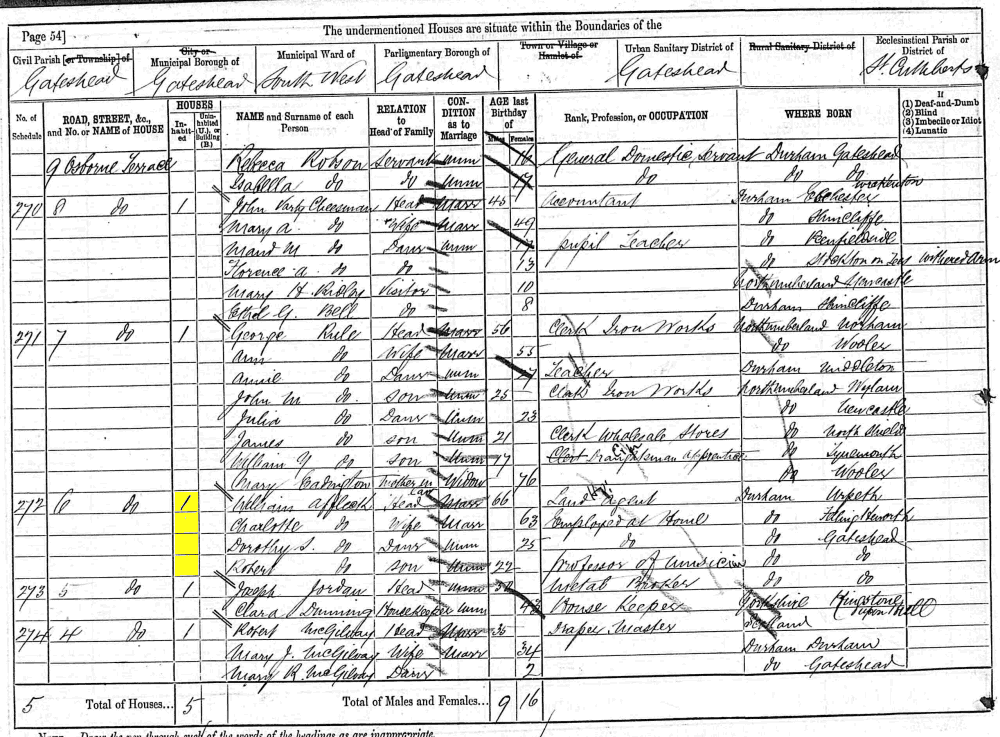 The undermentioned Houses are situate within the Boundaries of the
Page 54]
Civil Parish [or Township] of Gateshead
City or Municipal Borough of Gateshead
Municipal Ward of South West
Parliamentary Borough of Gateshead
Town or Village or Hamlet of
Urban Sanitary District of Gateshead
Rural Sanitary District of
Ecclesiastical Parish or District of St. Cuthberts
No. of Schedule
ROAD, STREET, &c., and No. or NAME of HOUSE
HOUSES
In-habit-ed
Unin-habited (U.), or Building (B.)
NAME and Surname of each Person
RELATION to Head of Family
CON-DITION as to Marriage
AGE last Birthday of
Males Females
Rank, Profession, or OCCUPATION
WHERE BORN
If
(1) Deaf-and-Dumb
(2) Blind
(3) Imbecile or Idiot
(4) Lunatic
9 Osborne Terrace Rebeca Robson Servant unm 16 General Domestic Servant Durham Gateshead
Isabella do do unm 17 do do do
270 8 do 1 John Cheesman Head Marr 45 Accountant Durham
Mary A. do Wife Marr 49 do Shincliffe
Maud M do Daur unm pupil Teacher do
Florence A. do do 13 do Stockton on Tees withered arm
Mary H Ridley Visitor 10 Northumberland Newcastle
Ethel G. Bell do 8 Durham Shincliffe
271 7 do 1 George Rule Head Marr 56 Clerk Iron Works Northumberland Norham
Ann do Wife Marr 55 do Wooler
Annie do Daur unm 27 Teacher Durham Middleton
John M do son unm 25 Clerk Iron Works Northumberland Wylam
Julia do Daur unm 23 do Newcastle
James do son unm 21 Clerk Wholesale Stores do North Shields
William Y do son unm 17 Draughtsman apprentice do Tynemouth
Mary Mother in Law Widow 76 do Wooler
272 6 do 1 William Affleck Head Marr 66 Land Agent Durham Urpeth
Charlotte do Wife Marr 63 Employed at Home do
Dorothy S. do Daur unm 25 do do Gateshead
Robert do son unm 22 professor of musician do do
273 5 do 1 Joseph Jordan Head unm Metal Broker do do
Clara Dunning Housekeeper unm 43 House Keeper Yorkshire Kingstone upon Hull
274 4 do 1 Robert McGilvay Head Marr 35 Draper Master Scotland
Mary J. McGilvay Wife Marr 34 Durham Durham
Mary R. McGilvay Daur 2 do Gateshead
5 Total of Houses... 5 Total of Males and Females... 9 16
NOTE.—Draw the pen through such of the words of the headings as are inappropriate.